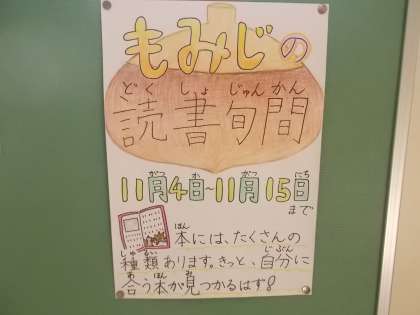 もみじの
どくしょじゅんかん
読書旬間
11月4日~11月15日
がつ か がつ にち
まで
本には、たくさんの
ほん
種類あります。きっと、自分に
しゅるい じぶん
合う本が見つかるはず!
あ ほん み